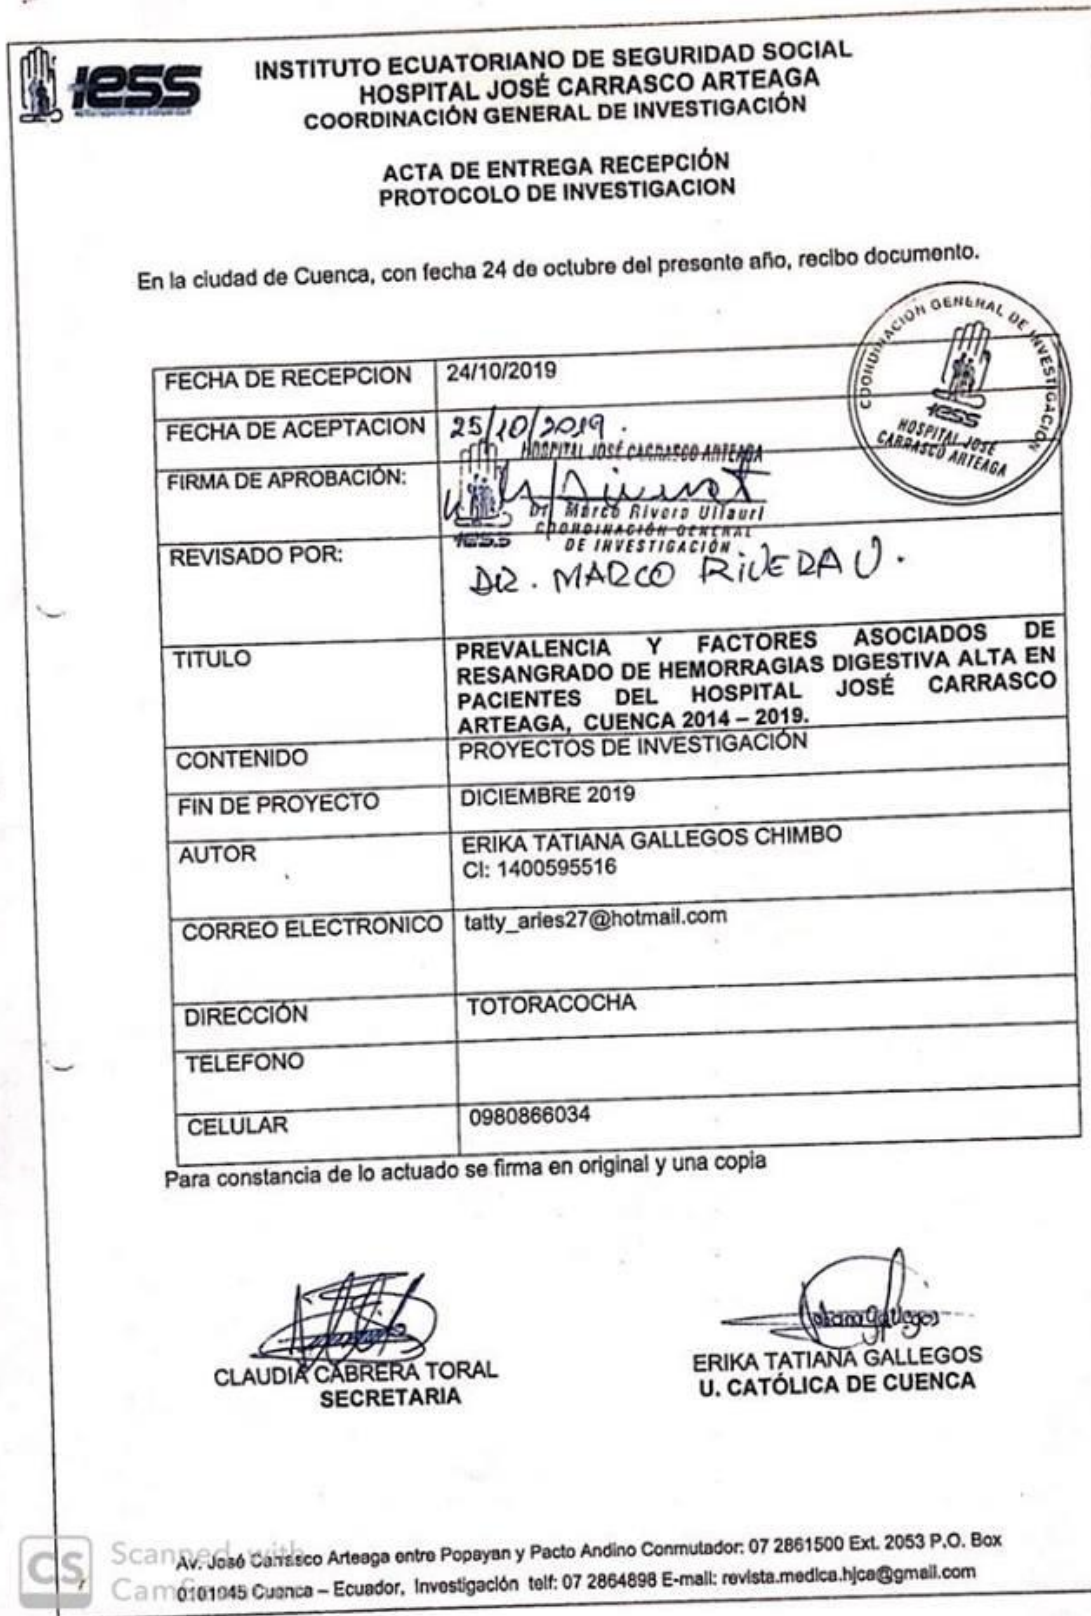 IESS
INSTITUTO ECUATORIANO DE SEGURIDAD SOCIAL
HOSPITAL JOSÉ CARRASCO ARTEAGA
COORDINACIÓN GENERAL DE INVESTIGACIÓN
ACTA DE ENTREGA RECEPCIÓN
PROTOCOLO DE INVESTIGACION
En la ciudad de Cuenca, con fecha 24 de octubre del presente año, recibo documento.
COORDINACIÓN GENERAL DE INVESTIGACIÓN
IESS
HOSPITAL JOSÉ
CARRASCO ARTEAGA
FECHA DE RECEPCION 24/10/2019
FECHA DE ACEPTACION 25/10/2019.
HOSPITAL JOSÉ CARRASCO ARTEAGA
FIRMA DE APROBACIÓN:
Dr. Marco Rivera Ullauri
COORDINACIÓN GENERAL
IESS DE INVESTIGACIÓN
REVISADO POR: DR. MARCO RIVERA U.
TITULO PREVALENCIA Y FACTORES ASOCIADOS DE
RESANGRADO DE HEMORRAGIAS DIGESTIVA ALTA EN
PACIENTES DEL HOSPITAL JOSÉ CARRASCO
ARTEAGA, CUENCA 2014 – 2019.
CONTENIDO PROYECTOS DE INVESTIGACIÓN
FIN DE PROYECTO DICIEMBRE 2019
AUTOR ERIKA TATIANA GALLEGOS CHIMBO
CI: 1400595516
CORREO ELECTRONICO tatty_aries27@hotmail.com
DIRECCIÓN TOTORACOCHA
TELEFONO
CELULAR 0980866034
Para constancia de lo actuado se firma en original y una copia
CLAUDIA CABRERA TORAL
SECRETARIA
ERIKA TATIANA GALLEGOS
U. CATÓLICA DE CUENCA
CS
Scanned with
Av. José Carrasco Arteaga entre Popayan y Pacto Andino Conmutador: 07 2861500 Ext. 2053 P.O. Box
0101045 Cuenca – Ecuador, Investigación telf: 07 2864898 E-mail: revista.medica.hjca@gmail.com